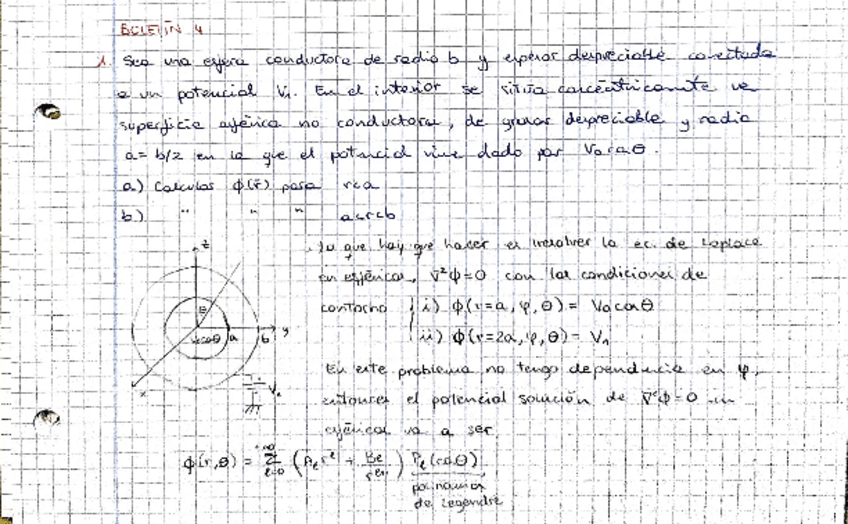 BOLETÍN 4
1. Sea una esfera conductora de radio b y espesor despreciable conectada
a un potencial V₁. En el interior se sitúa concéntricamente una
superficie esférica no conductora, de grosor despreciable y radio
a = b/2 en la que el potencial viene dado por V₀cosθ.
a) Calculas ϕ(r̄) para r<a
b) " " " a<r<b
. lo que hay que hacer es resolver la ec. de Laplace
en esféricas, ∇²ϕ=0 con las condiciones de
contorno i) ϕ(r=a, φ, θ) = V₀cosθ
ii) ϕ(r=2a, φ, θ) = V₁
z
θ
V₀cosθ a b y
x
V₁
En este problema no tengo dependencia en φ,
entonces el potencial solución de ∇²ϕ=0 en
esféricas va a ser
ϕ(r,θ) = Σ_{ℓ=0}^{+∞} (A_ℓ r^ℓ + B_ℓ/r^{ℓ+1}) P_ℓ(cosθ)
polinomios
de Legendre